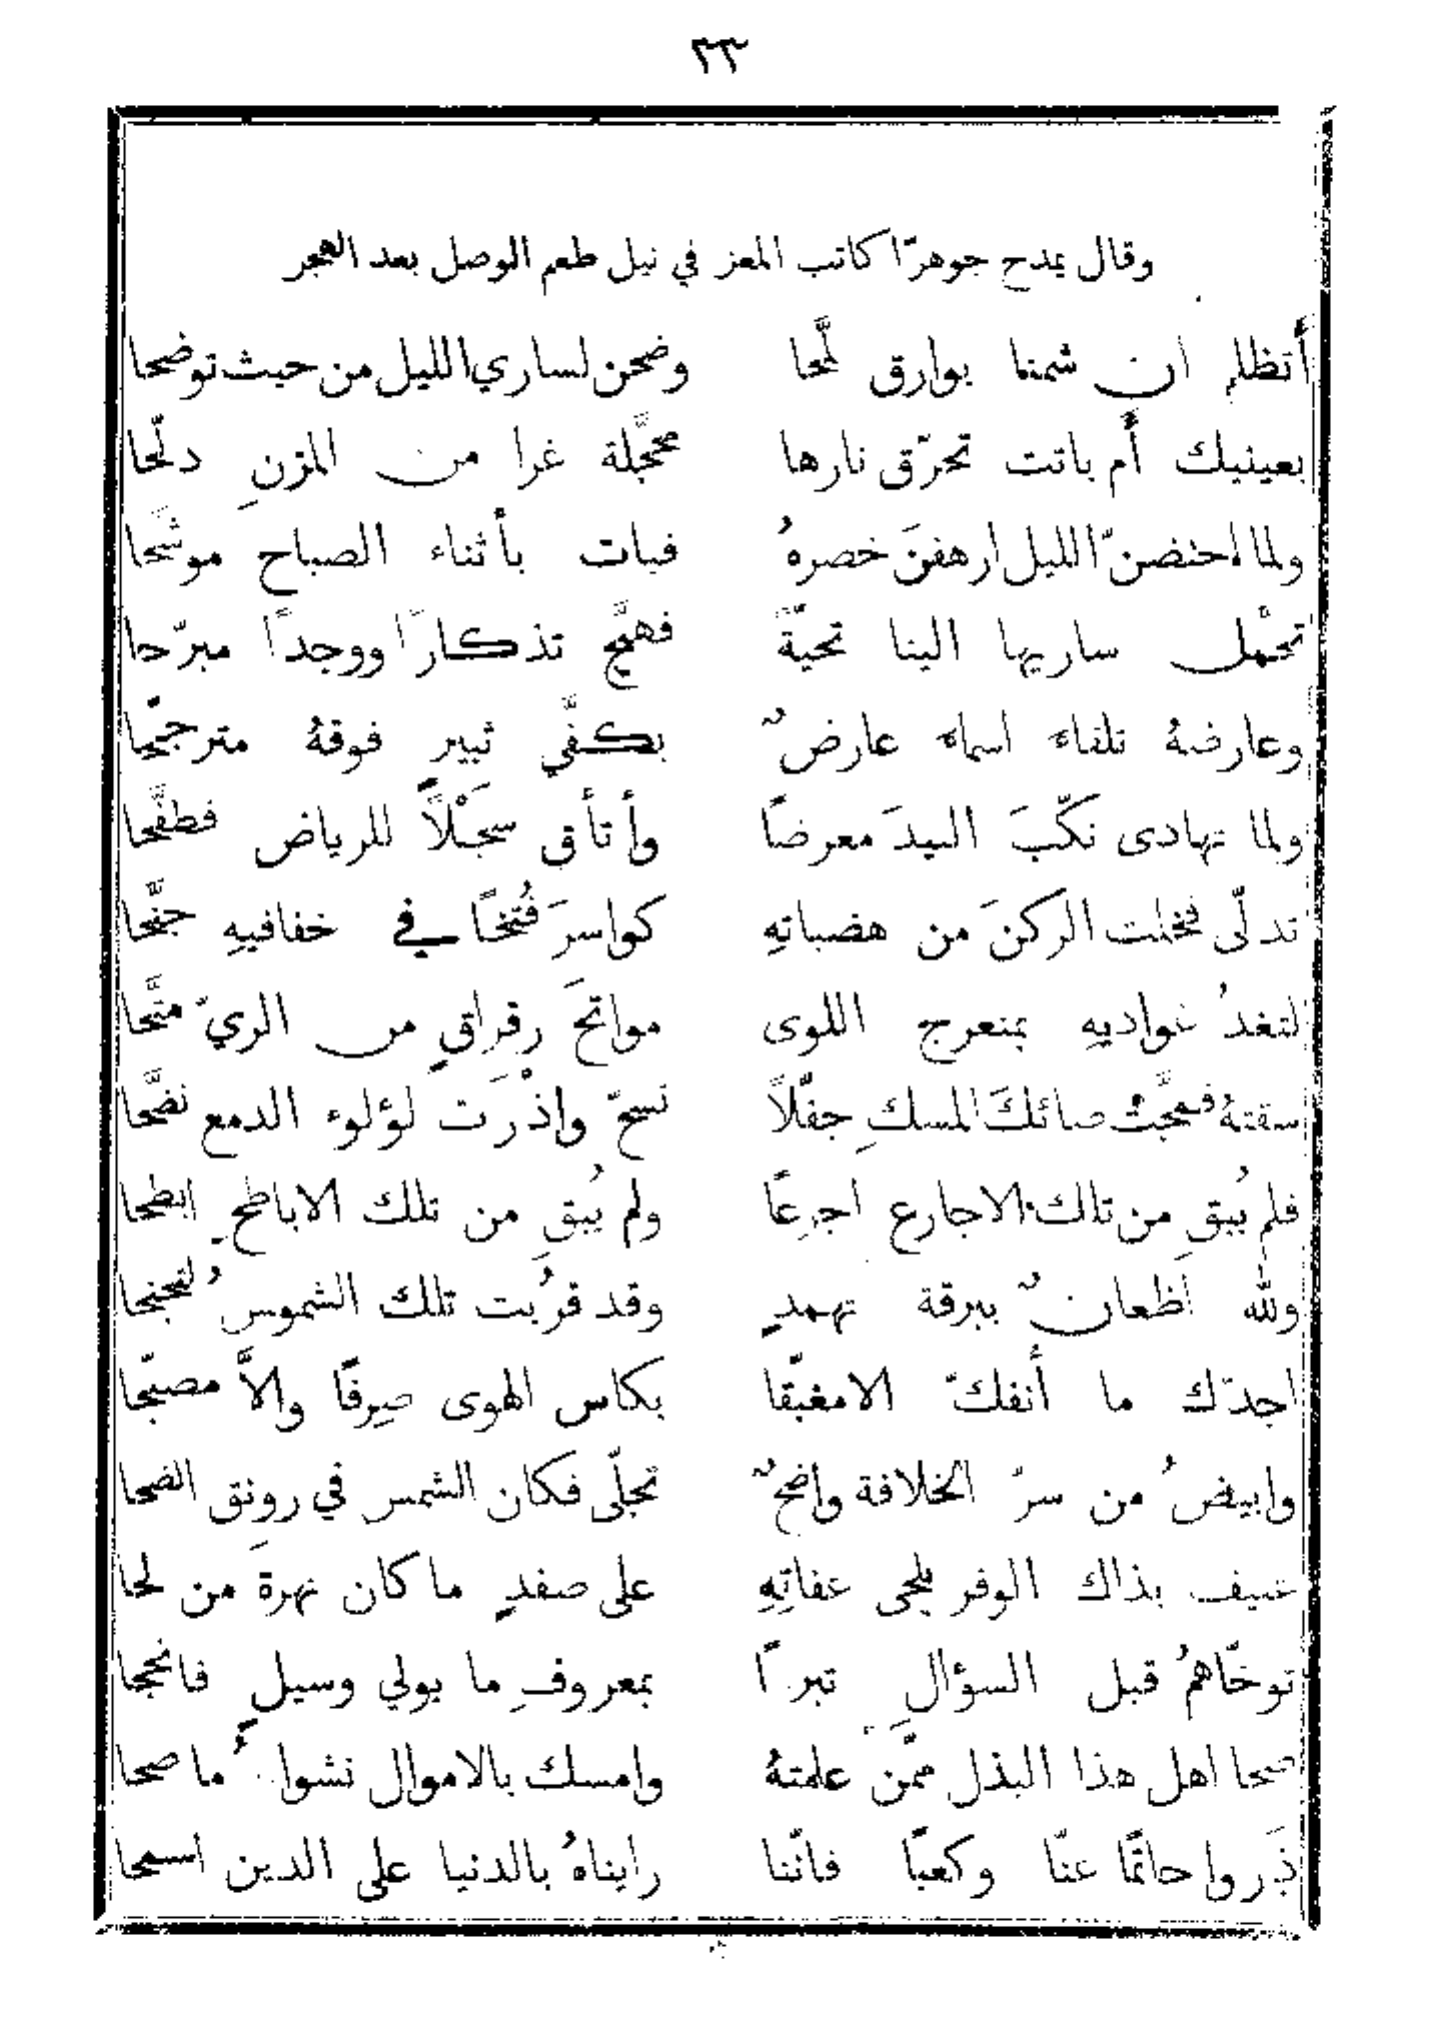 ٣٣
وقال يمدح جوهرًا كاتب المعز في نيل طعم الوصل بعد الهجر
أتظلم ان شمنا بوارق لمَّحا وضحن لساري الليل من حيث توضحا
بعينيك أم باتت تحرّق نارها محجَّلة غرا من المزنِ دلّحا
ولما احتضنّ الليل ارهفنَ خصرهُ فبات بأثناء الصباح موشَّحا
تحمَّل ساريها الينا تحيَّةً فهيَّج تذكارًا ووجدًا مبرّحا
وعارضهُ تلقاء اسماء عارضٌ بكفَّي ثبيرٍ فوقهُ مترجحّا
ولما تهادى نكّبَ البيدَ معرضًا وأتأق سجَلْاً للرياض فطفَّحا
تدلّى فخلت الركنَ من هضباتهِ كواسرَ فُتخًا في خفافيهِ جنَّحا
لتغدُ غواديهِ بمنعرج اللوى مواتحَ رقراقٍ من الريّ متَّحا
سقتهُ فمجَّت صائكَ المسكِ جفّلاً تسحّ واذْرَت لؤلوء الدمع نضَّحا
فلم يُبقِ من تلك الاجارع اجرعًا ولم يُبقِ من تلك الاباطحِ ابطحا
ولله اَظعانٌ ببرقة تهمدٍ وقد قرُبت تلك الشموسُ لتجنحا
اجدّك ما أنفكّ الا مغبّقًا بكاس الهوى صِرفًا والاَّ مصبّحا
وابيضُ من سرّ الخلافة واضحٌ تجلّى فكان الشمس في رونق الضحا
عنيف بذاك الوفر يلحى عفاتِهِ على صفدٍ ما كان نهزةَ من لحا
توخّاهمُ قبل السؤالِ تبرعًا بمعروفِ ما يولي وسيلٍ فانجحا
صحا اهل هذا البذل ممَّن علمتهُ وامسك بالاموال نشوان ما صحا
ذَروا حاتمًا عنّا وكعبًا فانّنا رايناهُ بالدنيا على الدين اسمحا